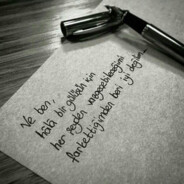 Ne ben,
hâlâ bir gülüşün için
her şeyden vazgeçebileceğimi
farkettiğinden beri iyi değilim..